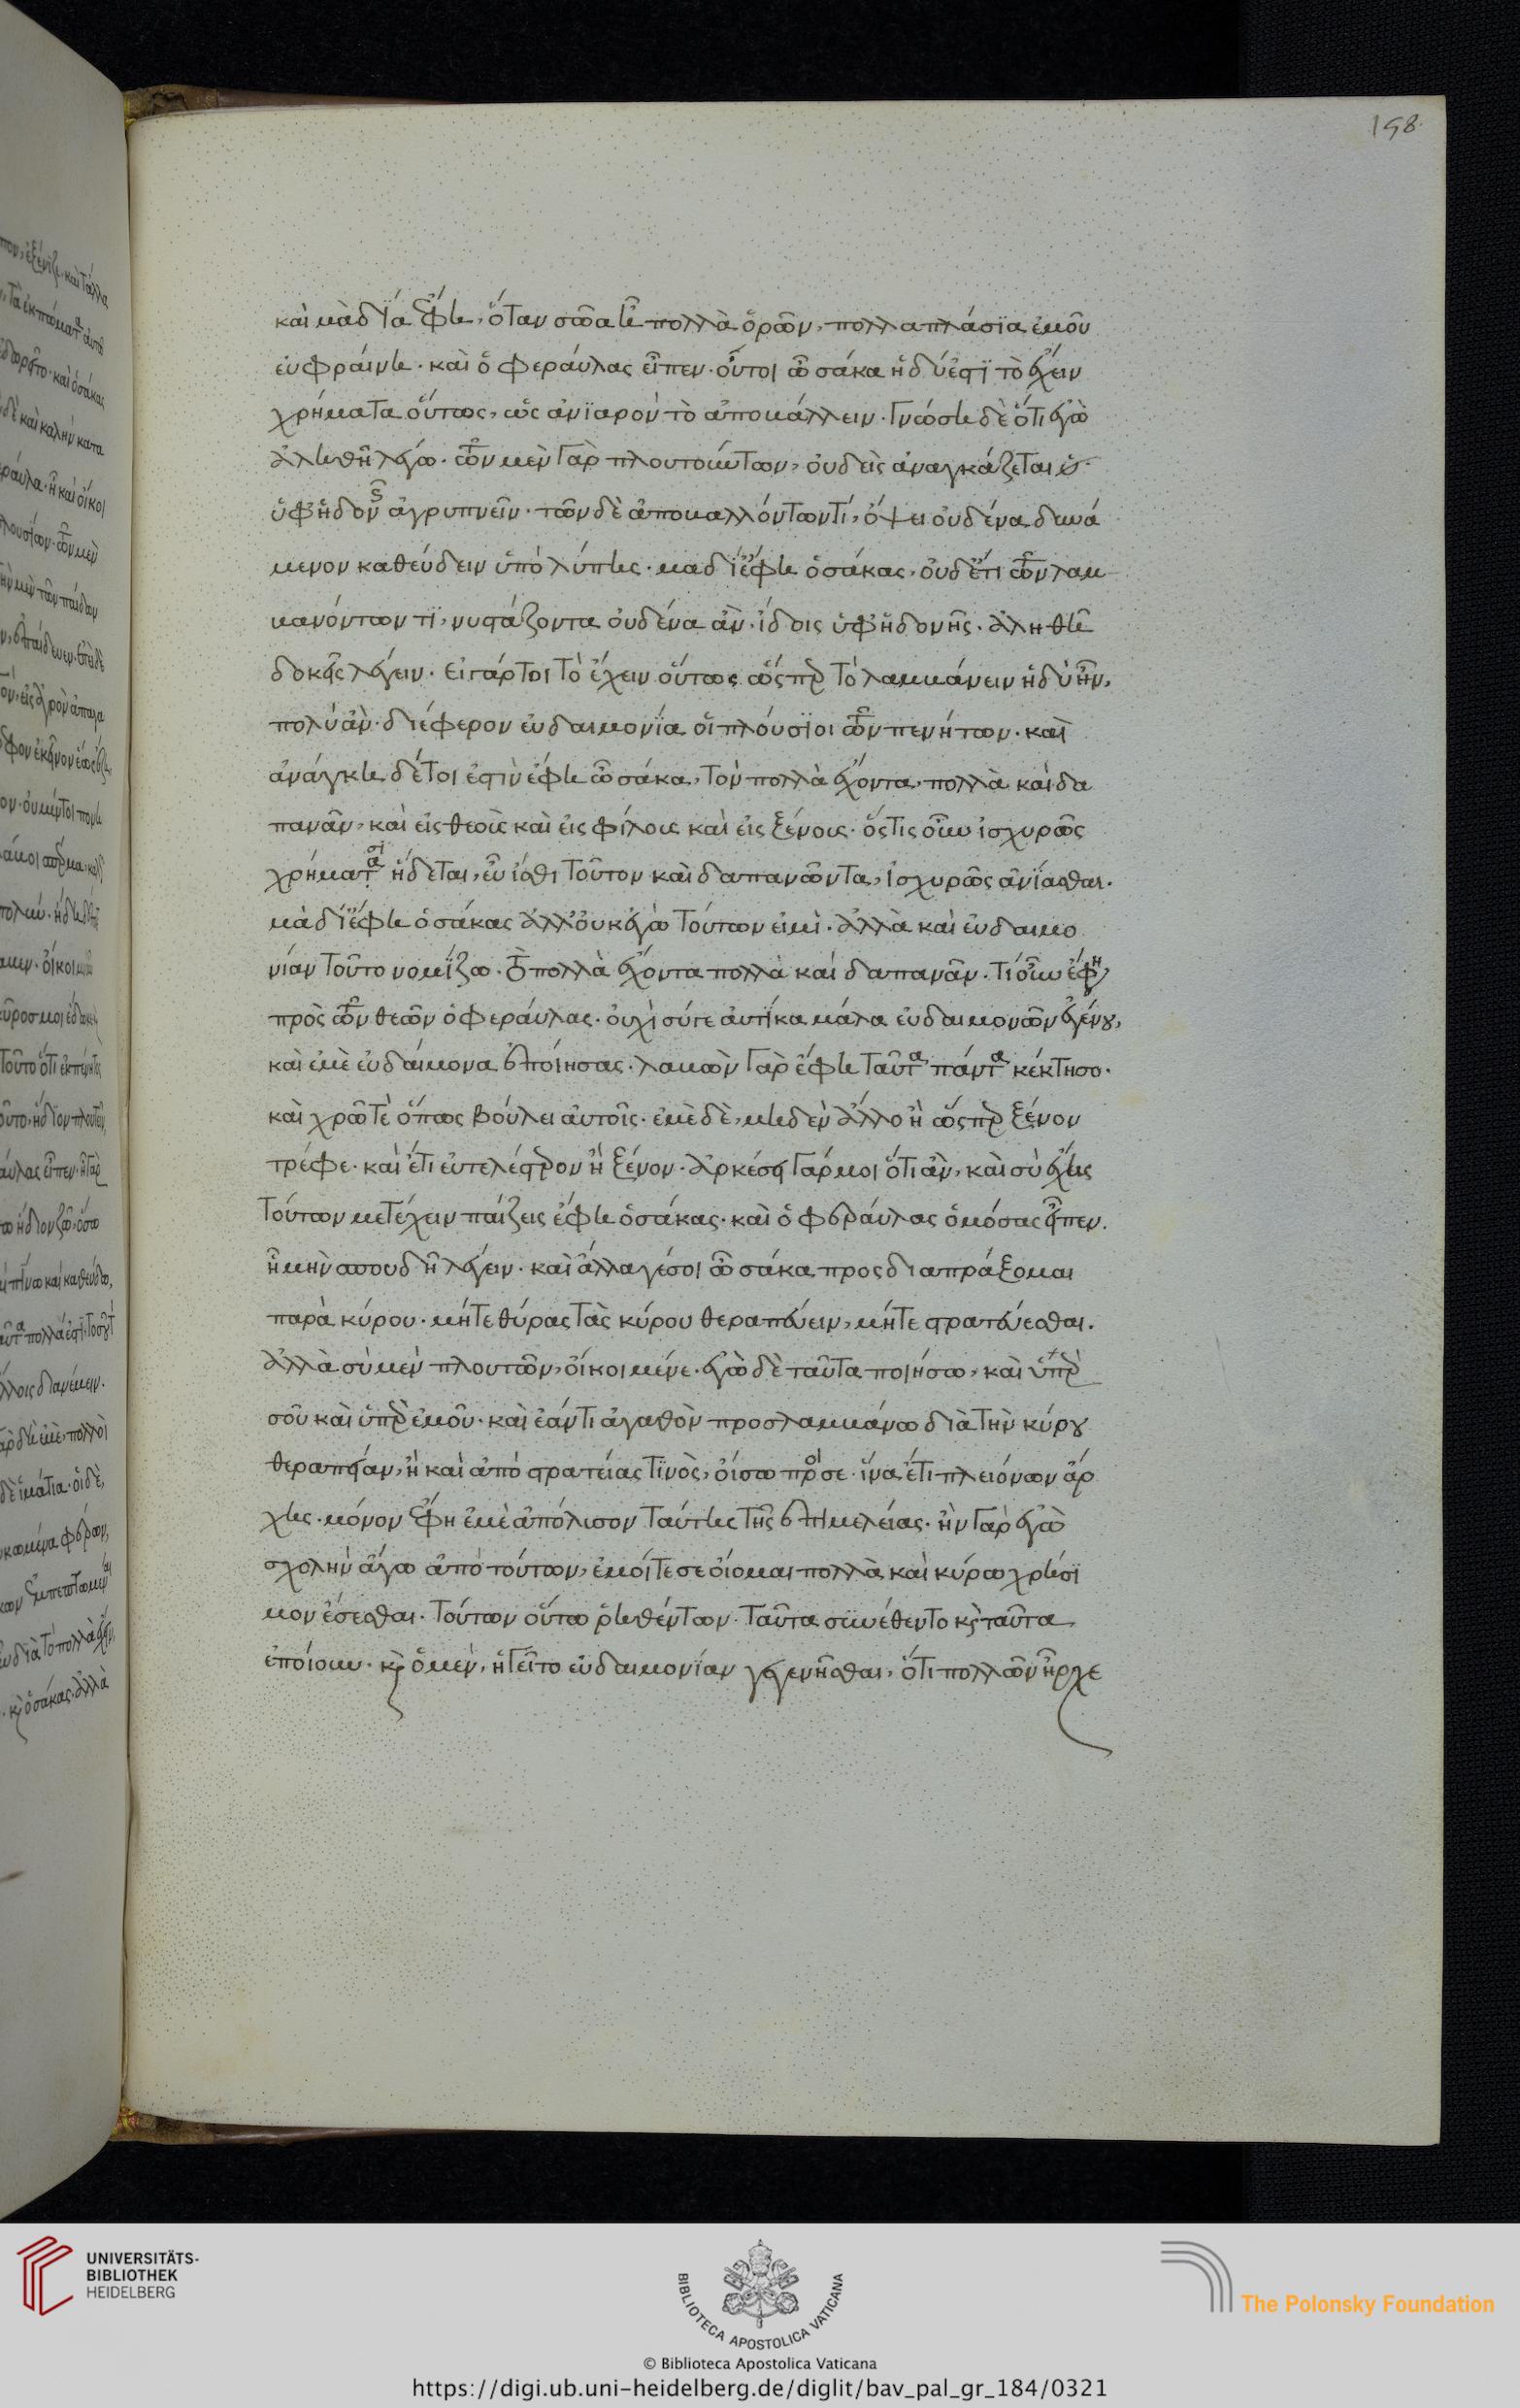 158
καὶ μὰ δία ἔφη, ὅταν σῶα ᾖ πολλὰ ὁρῶν, πολλαπλάσϊα ἐμοῦ
εὐφραίνη. καὶ ὁ φεραύλας εἶπεν. οὔτοι ὦ σάκα ἡδύ ἐστϊ τὸ ἔχειν
χρήματα οὕτως, ὡς ἀνϊαρὸν τὸ ἀποβάλλειν. γνώση δὲ ὅτι ἐγὼ
ἀληθῆ λέγω. τῶν μὲν γὰρ πλουτούντων, οὐδεὶς ἀναγκάζεται
ὑφ ἡδονῆς ἀγρυπνεῖν. τῶν δὲ ἀποβαλλόντων τί, ὄψει οὐδένα δυνά
μενον καθεύδειν ὑπὸ λύπης. μὰ δί ἔφη ὁ σάκας, οὐδ ἔτι τῶν λαμ
βανόντων τϊ, νυστάζοντα οὐδένα ἂν ἴδοις ὑφ ἡδονῆς. ἀληθῆ
δοκεῖς λέγειν. εἰ γάρ τοι τὸ ἔχειν οὕτως ὥσπερ τὸ λαμβάνειν ἡδὺ ἦν,
πολὺ ἂν διέφερον εὐδαιμονία οἱ πλούσϊοι τῶν πενήτων. καὶ
ἀνάγκη δέ τοι ἐστὶν ἔφη ὦ σάκα, τὸν πολλὰ ἔχοντα, πολλὰ καὶ δα
πανᾶν, καὶ εἰς θεοὺς καὶ εἰς φίλους καὶ εἰς ξένους. ὅστις οὖν ἰσχυρῶς
χρήμασι ἥδεται, εὖ ἴσθι τοῦτον καὶ δαπανῶντα, ἰσχυρῶς ἀνϊᾶσθαι.
μὰ δί ἔφη ὁ σάκας ἀλλ οὐκ ἐγὼ τούτων εἰμὶ. ἀλλὰ καὶ εὐδαιμο
νίαν τοῦτο νομίζω. τὸ πολλὰ ἔχοντα πολλὰ καὶ δαπανᾶν. τί οὖν ἔφη
πρὸς τῶν θεῶν ὁ φεραύλας. οὐχὶ σύγε αὐτίκα μάλα εὐδαιμονῶν ἐγένου,
καὶ ἐμὲ εὐδαίμονα ἐποίησας. λαβὼν γὰρ ἔφη ταῦτα πάντα κέκτησο.
καὶ χρῶ τὲ ὅπως βούλει αὐτοῖς. ἐμὲ δὲ, μηδὲν ἄλλο ἢ ὥσπερ ξένον
τρέφε. καὶ ἔτι εὐτελέστερον ἢ ξένον. ἀρκέσει γάρ μοι ὅτι ἂν, καὶ σὺ ἔχης
τούτων μετέχειν παίζεις ἔφη ὁ σάκας. καὶ ὁ φεραύλας ὀμόσας εἶπεν.
ἦ μὴν σπουδῆ λέγειν. καὶ ἄλλα γέ σοι ὦ σάκα προσδιαπράξομαι
παρὰ κύρου. μήτε θύρας τὰς κύρου θεραπεύειν, μήτε στρατεύεσθαι.
ἀλλὰ σὺ μὲν πλουτῶν, οἴκοι μένε. ἐγὼ δὲ ταῦτα ποιήσω, καὶ ὑπὲρ
σοῦ καὶ ὑπὲρ ἐμοῦ. καὶ ἐάν τι ἀγαθὸν προσλαμβάνω διὰ τὴν κύρου
θεραπείαν, ἢ καὶ ἀπὸ στρατείας τινὸς, οἴσω πρός σε. ἵνα ἔτι πλειόνων ἄρ
χης. μόνον ἔφη ἐμὲ ἀπόλυσον ταύτης τῆς ἐπιμελείας. ἢν γὰρ ἐγὼ
σχολὴν ἄγω ἀπὸ τούτων, ἐμοί τε σε οἴομαι πολλὰ καὶ κύρω χρήσϊ
μον ἔσεσθαι. τούτων οὕτω ῥηθέντων. ταῦτα συνέθεντο καὶ ταῦτα
ἐποίουν. καὶ ὁ μὲν, ἡγεῖτο εὐδαιμονίαν γεγενῆσθαι, ὅτι πολλῶν ἦρχε
UNIVERSITÄTS-
BIBLIOTHEK
HEIDELBERG
BIBLIOTECA APOSTOLICA VATICANA
© Biblioteca Apostolica Vaticana
The Polonsky Foundation
https://digi.ub.uni-heidelberg.de/diglit/bav_pal_gr_184/0321